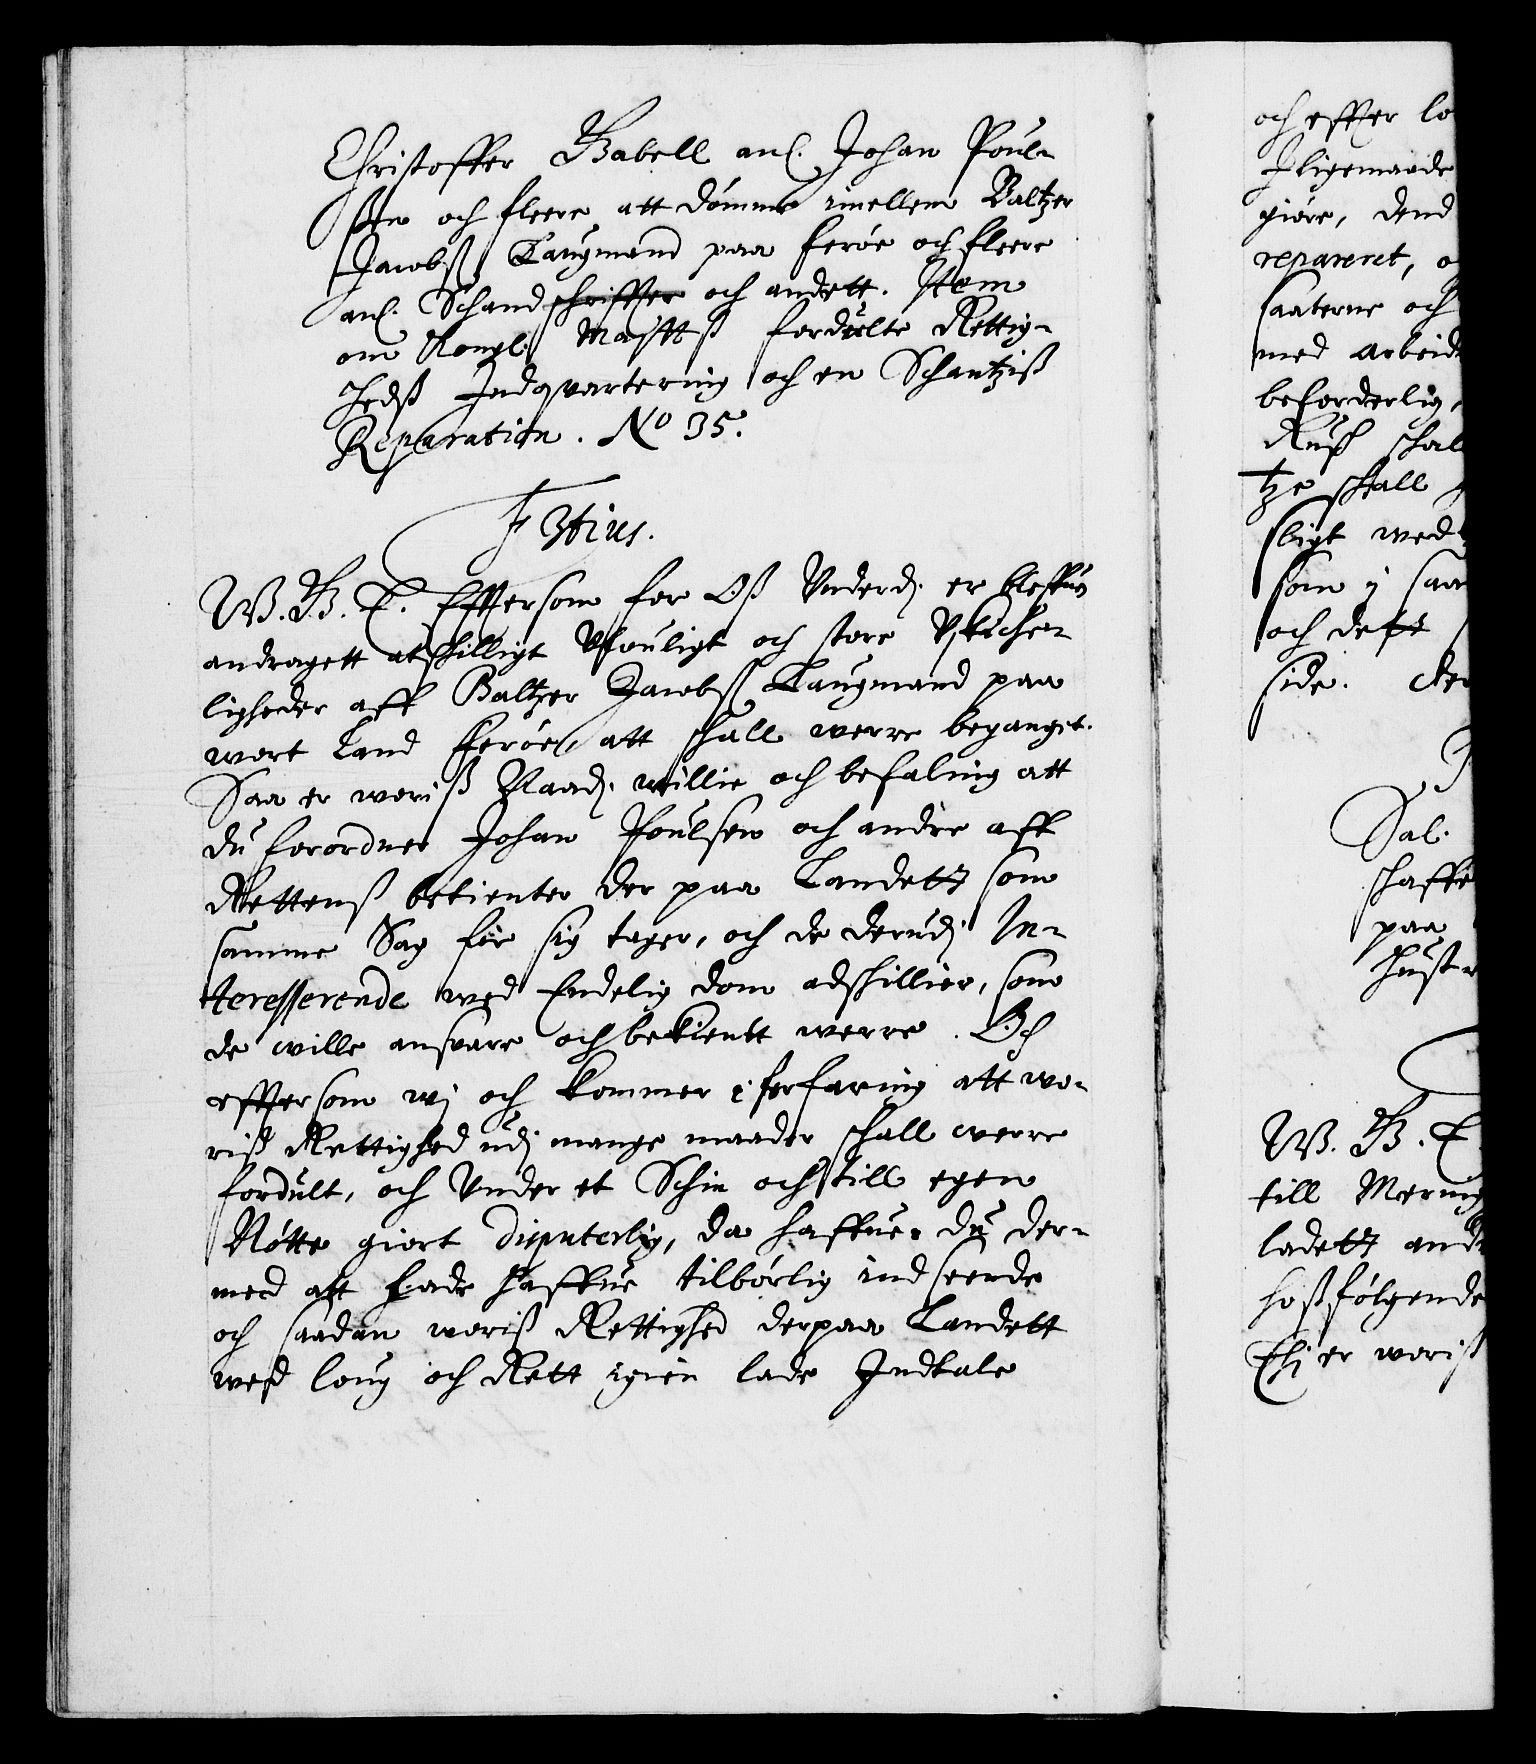 Christoffer Gabell anl. Johan Poul-
ßen och fleere att dømme imellem Baltzer
Jacobß. Laugmand paa Ferøe och fleere
anl. Schandschriffter och andett. Item
om Kongl. Maÿttß fordulte Rettig-
hedß Indqvartering och en Schantziß
Reparation. No 35.
F 3tius.
W. G. T. Effter som for Oß Underd. er bleffuen
andragett atskilligt Ulouligt och store Uskicke-
ligheder aff Baltzer Jacobß. Laugmand paa
wort Land Ferøe, att skall werre begangit.
Saa er woriß Naad. willie och befaling att
du forordner Johan Poulsen och andre aff
Rettenß betienter der paa Landett som
samme Sag for sig tager, och de derudj In-
teresserende wed Endelig dom adskillier, som
de wille answare och bekientt werre. Och
effter som wj och kommer i forfaring att wo-
riß Rettighed udj mange maader skall werre
fordult, och Under et Schin och till egen
Nøtte giort disputerlig, da haffuer du der-
med att lade haffue tilbørlig indseende
och saadan woriß Rettighed derpaa Landett
wed loug och Rett igien lade Indtale
och effter lo
Iligemaade
giøre, dend
repareret, o
saaterne och
med Arbeid
beforderlig,
skall
tze skall
sligt wed
som j saa
och
side.
Sal.
skaffe
paa
Hustr
W. G. T.
till
ladett and
hoßfølgende
Thj er woriß